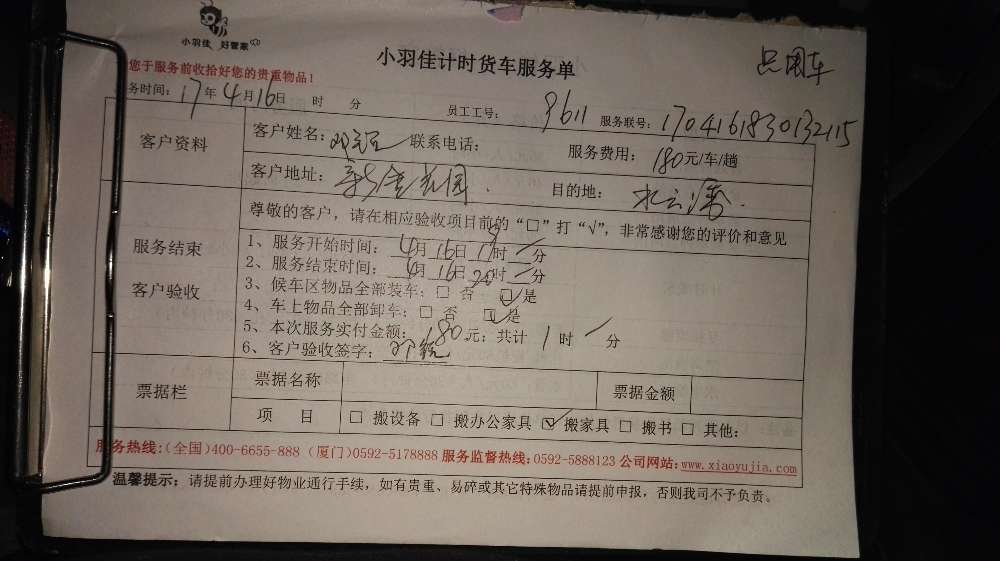 小羽佳 好管家
小羽佳计时货车服务单
只用车
您于服务前收拾好您的贵重物品!
务时间: 17年4月16日 时 分 员工工号: 9611 服务联号: 1704161830132115
客户资料
客户姓名: 联系电话: 服务费用: 180元/车/趟
客户地址: 花园 目的地: 水云湾
服务结束
客户验收
尊敬的客户,请在相应验收项目前的“□”打“√”,非常感谢您的评价和意见
1、服务开始时间: 4月16日19时/分
2、服务结束时间: 4月16日20时/分
3、候车区物品全部装车: □ 否 ☑是
4、车上物品全部卸车: □ 否 ☑是
5、本次服务实付金额: 180元; 共计 1时/分
6、客户验收签字:
票据栏 票据名称 票据金额
项 目 □ 搬设备 □ 搬办公家具 ☑ 搬家具 □ 搬书 □ 其他:
服务热线:(全国)400-6655-888 (厦门)0592-5178888 服务监督热线:0592-5888123 公司网站:www.xiaoyujia.com
温馨提示: 请提前办理好物业通行手续,如有贵重、易碎或其它特殊物品请提前申报,否则我司不予负责。